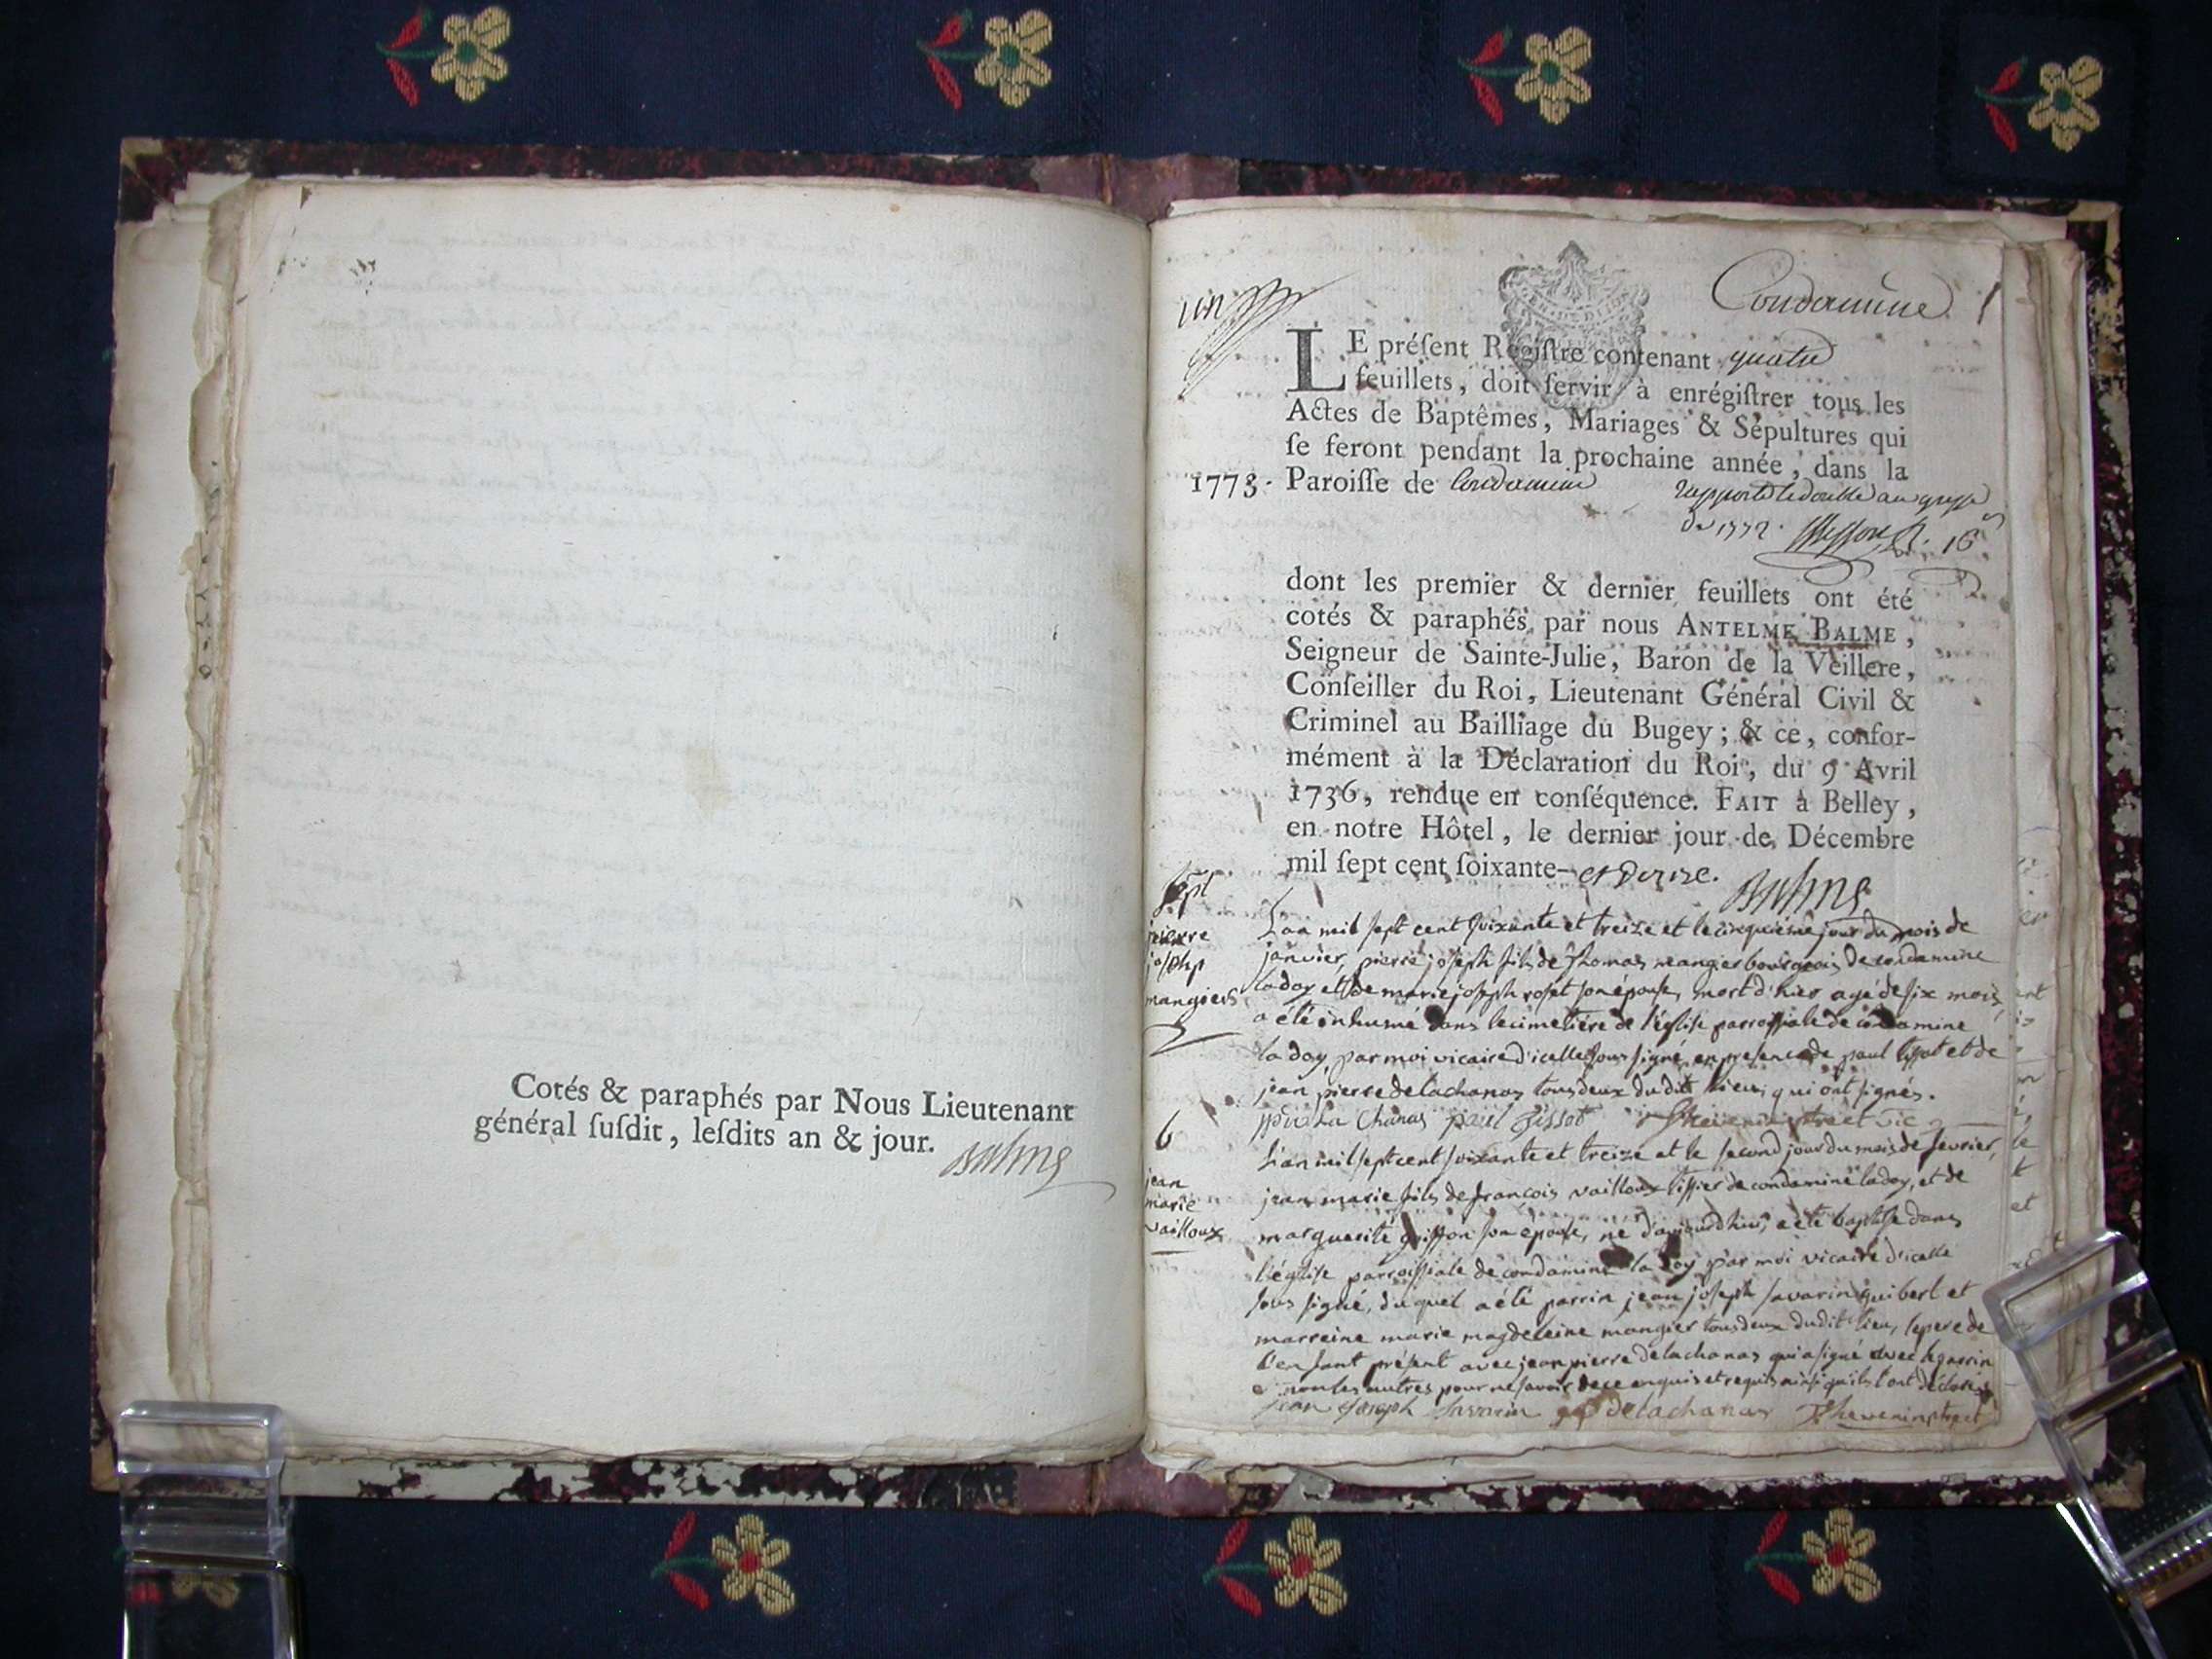 Cotés & paraphés par Nous Lieutenant
général ſuſdit, leſdits an & jour.
Balme
un
Condamine 1
LE préſent Regiſtre contenant quatre
feuillets, doit ſervir à enrégiſtrer tous les
Actes de Baptêmes, Mariages & Sépultures qui
ſe feront pendant la prochaine année, dans la
1773. Paroiſſe de Condamine
rapporté le double au greffe
de 1772.
dont les premier & dernier feuillets ont été
cotés & paraphés par nous ANTELME BALME,
Seigneur de Sainte-Julie, Baron de la Veillere,
Conſeiller du Roi, Lieutenant Général Civil &
Criminel au Bailliage du Bugey; & ce, confor-
mément à la Déclaration du Roi, du 9 Avril
1736, rendue en conſéquence. FAIT à Belley,
en notre Hôtel, le dernier jour de Décembre
mil ſept cent ſoixante- et douze. Balme
ſept
pierre
joſeph
mangier
L'an mil ſept cent ſoixante et treize et le cinquieme jour du mois de
janvier, pierre joſeph fils de thomas mangier bourgeois de condamine
la doy et de marie joſeph roſet ſon épouſe, mort d'hier agé de ſix mois,
a été inhumé dans le cimetière de l'égliſe parroiſſiale de condamine
la doy, par moi vicaire d'icelle ſous ſigné en preſence de paul tiſſot et de
jean pierre delachanas tous deux du dit lieu, qui ont ſignés.
la Chanas paul Tissot Thevenin ptre et vic
b
jean
marie
vailloux
L'an mil ſept cent ſoixante et treize et le ſecond jour du mois de fevrier,
jean marie fils de françois vailloux tiſſier de condamine la doy, et de
marguerite griffon ſon épouſe, né d'aujourdhui, a été baptiſé dans
l'égliſe parroiſſiale de condamine la doy par moi vicaire d'icelle
ſous ſigné, duquel a été parrin jean joſeph ſavarin guibert et
marreine marie magdeleine mangier tous deux du dit lieu, le pere de
l'enfant préſent avec jean pierre delachanas qui a ſigné avec le parrin
non les autres pour ne ſavoir de ce enquis et requis ainſi qu'ils l'ont déclaré
jean joseph Savarin delachanas Thevenin ptre et